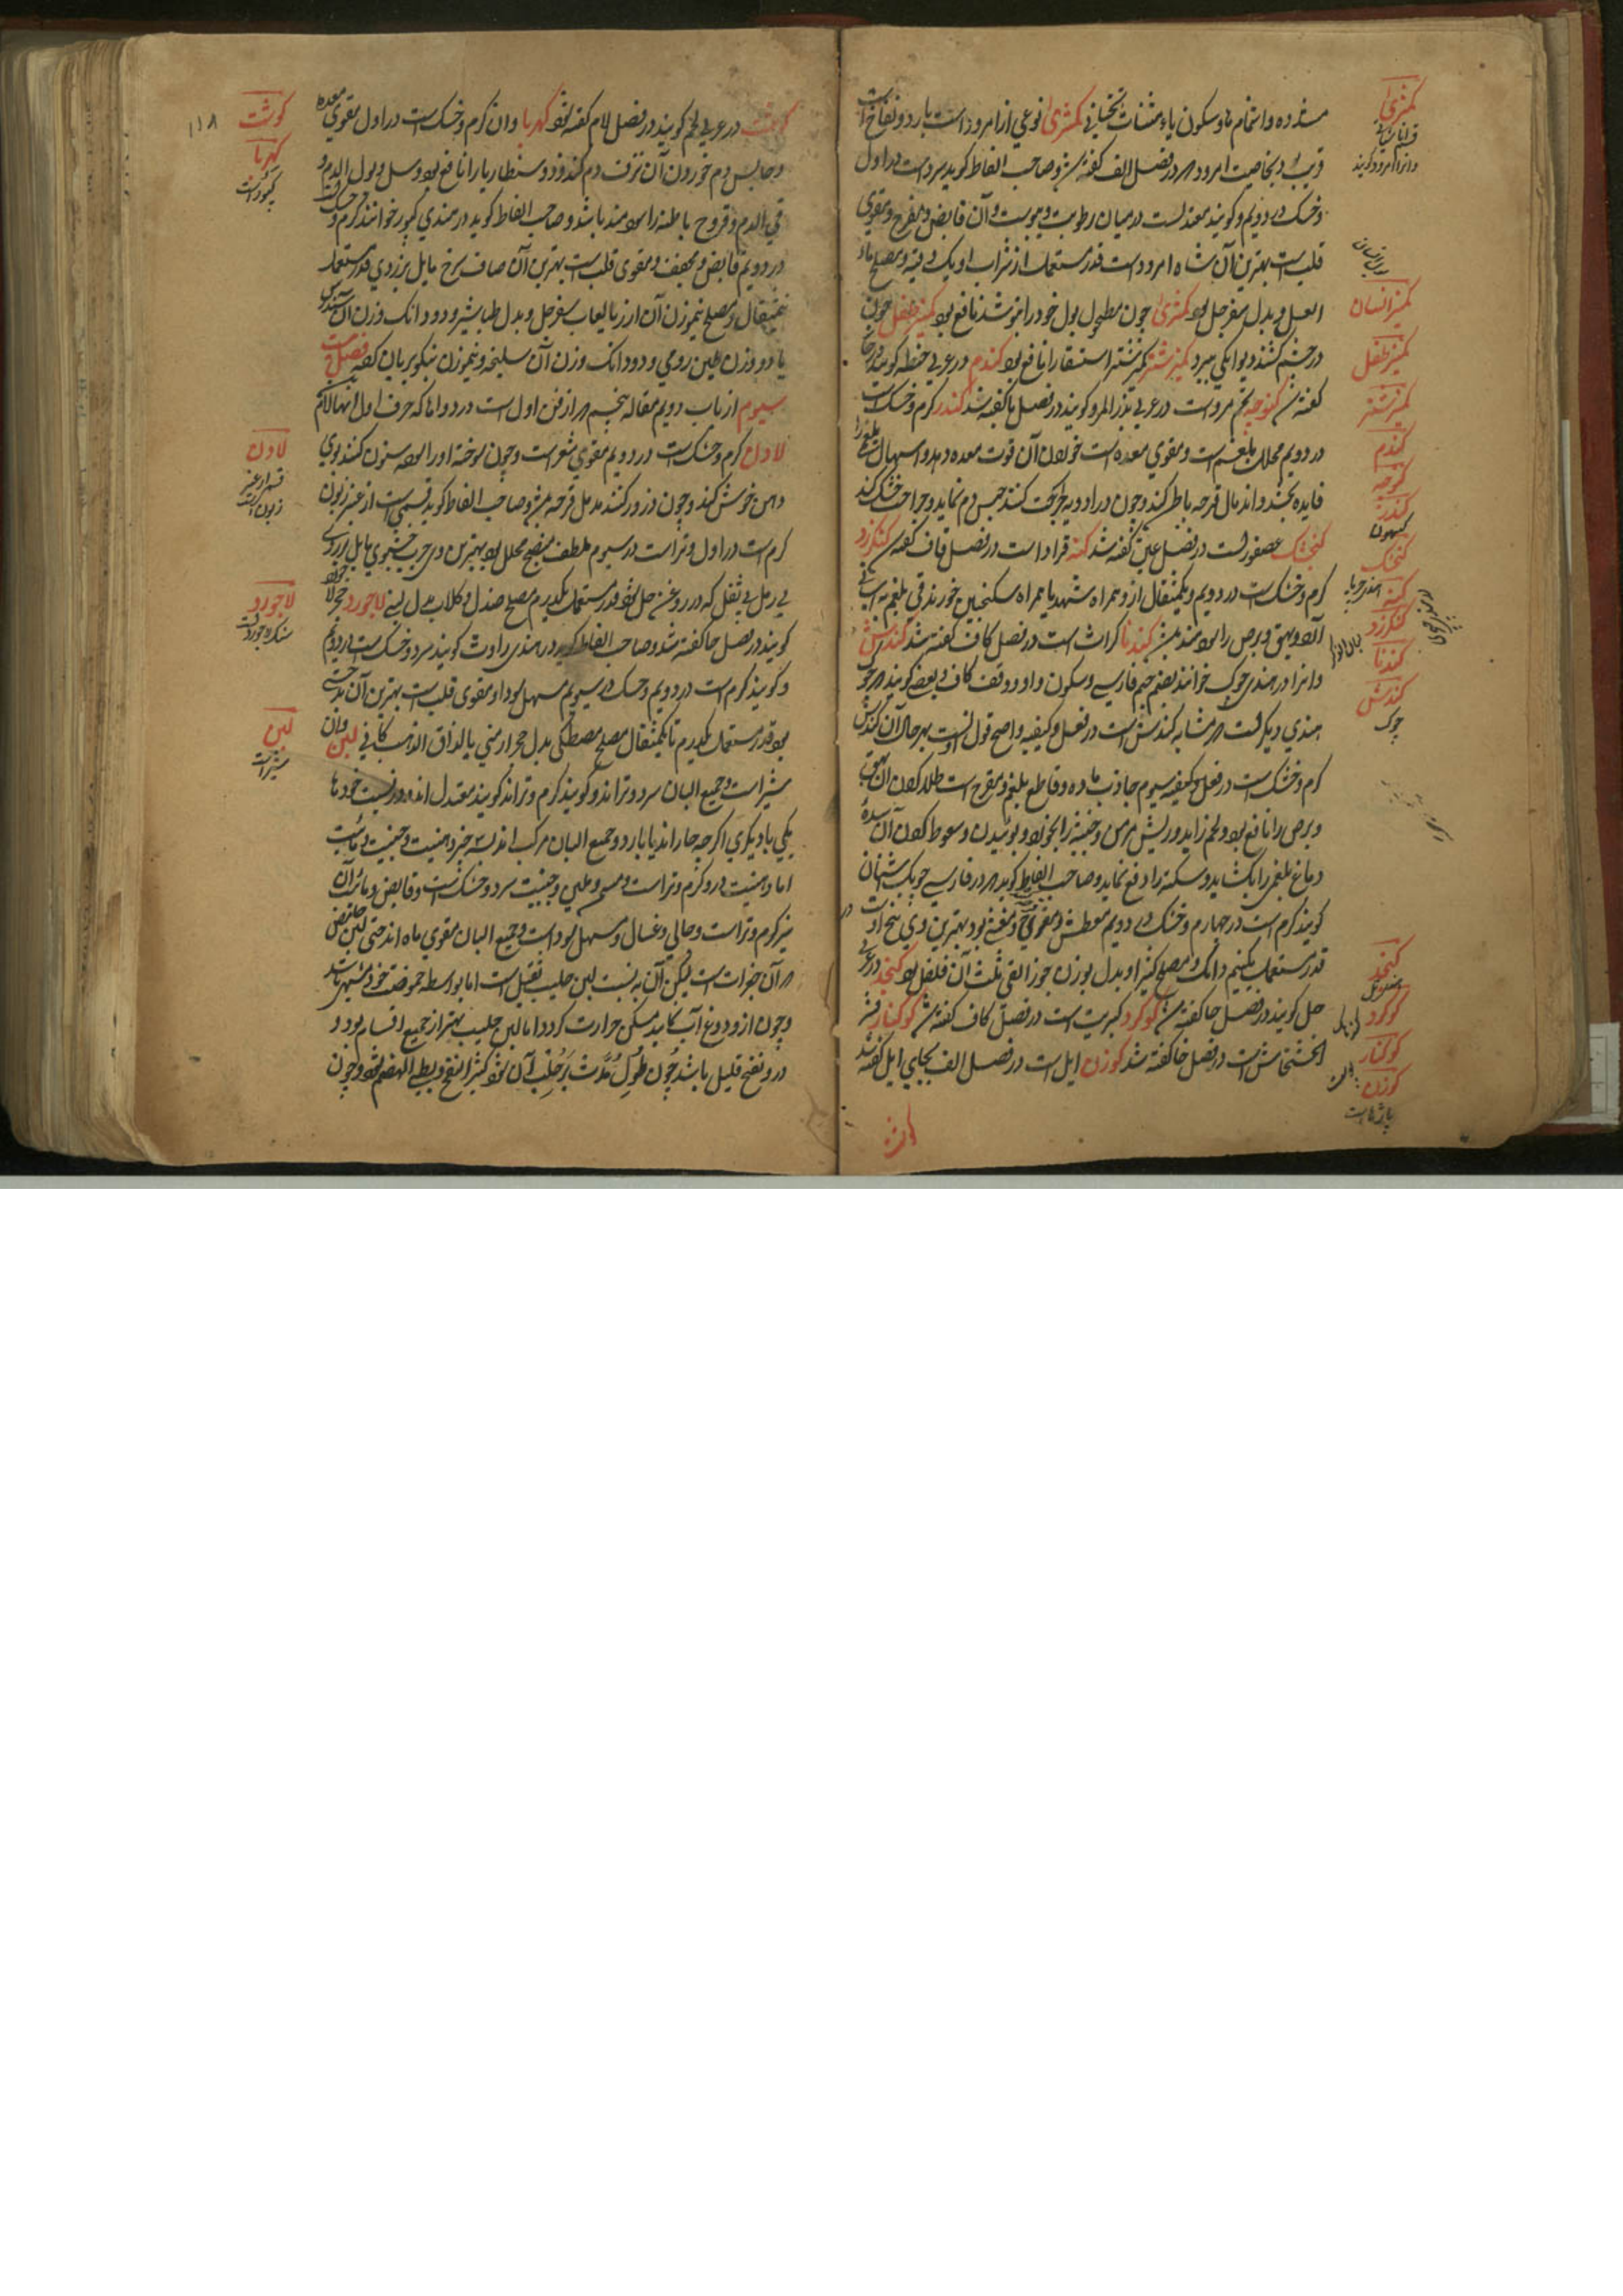 مشدده و اشمام ها و سکون یاء مثنات تحتانی کمثری نوعی از امرود است بارد و نفاخ است
قریب و بخاصیت امرود در فصل الف گفته شد و صاحب الفاظ گوید سرد است در اول
و خشک در دویم و گویند معتدلست در میان رطوبت و یبوست و آن قابض و مفرح و مقوی
قلب است بهترین آن شاه امرود است قدر مستعمل از شراب او یک وقیه و مصلح ماء
العسل و بدل سفرجل بود کمیز انسان چون مطحول بول خود را بنوشد نافع بود کمیز طفل چون
در چشم کشند کمیز شتر استسقا را نافع بود گندم در عربی حنطه گویند در حا
گفته شد کنوچه تخم مرو است در عربی بذر المرو گویند در فصل با گفته شد کندر گرم و خشک است
در دویم محلل بلغم است و مقوی معده است خوردن آن قوت معده دهد و اسهال بلغمی را
فایده بخشد و اندمال قرحه باطن کند و چون در ادویه جراحت کنند حبس دم نماید و جراحت خشک کند
کنجشک عصفور است در فصل عین گفته شد کنه قراد است در فصل قاف گفته شد کنکرزد
گرم و خشک است در دویم و یکمثقال از و همراه شهد یا همراه سکنجبین خورند قی بلغم به آسانی
آرد و بهق و برص را سودمند بود گندنا کراث است در فصل کاف گفته شد کندش
و آنرا در هندی چوک خوانند بضم جیم فارسی و سکون واو و وقف کاف و بعضی گویند که چوک
هندی دیگر است که مشابه کندش است در فعل و کیفیه و اصح قول اینست بهر حال آن کندش
گرم و خشک است در فعل و کیفیه سیوم جاذب ماده و قاطع بلغم و مقرح است طلا کردن آن بهق
و برص را نافع بود و لحم زاید و ریش مزمن و خبیثه را بخورد و بوئیدن و سعوط کردن آن سده
دماغ بلغمی را بکشاید و سکته را دفع نماید و صاحب الفاظ گوید که در فارسی چوبک اشنان
گویند گرم است در چهارم و خشک در دویم معطش و مقی بود بهترین وی بیخ او است
قدر مستعمل یکنیم دانگ و مصلح کتیرا و بدل بوزن جوز القی و ثلث آن فلفل بود کنجد در عربی
حل گویند در فصل حا گفته شد گوگرد کبریت است در فصل کاف گفته شد کوکنار قشر
الخشخاش است در فصل خا گفته شد گوزن ایل است در فصل الف بجای ایل گفته شد
کمثری
کمیز انسان
کمیز طفل
کمیز شتر
گندم
کنوچه
کندر
کنجشک
کنه
کنکرزد
گندنا
کندش
چوک
کنجد
گوگرد
کوکنار
گوزن
گوشت
گوشت در عربی لحم گویند در فصل لام گفته شود کهربا و آن گرم و خشک است در اول مقوی معده
و حابس دم خوردن آن نزف دم کند و ذوسنطاریا را نافع بود و سل و بول الدم و
قی الدم و قروح باطنه را سودمند باشد و صاحب الفاظ گوید در هندی کپور خوانند گرم و خشک
در دویم قابض و مجفف و مقوی قلب است بهترین آن صاف سرخ مایل بزردی قدر مستعمل
نیمثقال و مصلح نیموزن آن ارز یا لعاب سفرجل و بدل طباشیر و دو دانگ وزن آن سندروس
یا دو وزن طین رومی و دو دانگ وزن آن سلیخه و نیموزن بریان کرده فصل بیست
سیوم از باب دویم مقاله پنجم که از فن اول است در دواها که حرف اول آنها لام
لادن گرم و خشک است در دویم مقوی شعر است و چون سوخته او را سنون کنند بوی
دهن خوش کند و چون ذرور کنند مدمل قرحه بود و صاحب الفاظ گوید قسمی است از عنبر زبون
گرم است در اول و تر است در سیوم ملطف منضج محلل بود بهترین وی چرب خوشبوی مایل بزردی
بی رمل بی ثفل که در روغن حل شود قدر مستعمل یکدرم مصلح صندل و کلاب بدل لاجورد حجر لاجورد
گویند در فصل حا گفته شد و صاحب الفاظ گوید در هندی راوت گویند سرد و خشک است در دویم
و گویند گرم است در دویم و خشک در سیوم مسهل سودا و مقوی قلب است بهترین آن بدخشی
بود قدر مستعمل یکدرم تا یکمثقال مصلح مصطکی بدل حجر ارمنی یا لزاق الذهب کانی لبن و آن
شیر است و جمیع البان سرد و تر اند و گویند گرم و تر اند گویند معتدل اند در نسبت خودها
یکی با دیگری اگرچه حار اند یا بارد و جمیع البان مرکب اند از سه جزو دهنیت و جبنیت و مائیت
اما دهنیت در و گرم و تر است و مسمن و ملین و جبنیت سرد و خشک است و قابض و مائیت آن
نیز گرم و تر است و جالی و غسال و مسهل سودا است و جمیع البان مقوی باه اند حتی لبن حامض
که آن جغرات است لیکن آن به نسبت لبن حلیب ثقیل است اما بواسطه حموضت خود مشهی باشد
و چون از و دوغ آب کامید مسکن حرارت گردد اما لبن حلیب بهتر از جمیع اقسام بود و
در و نفخ قلیل باشد چون طول مدت بر حلب آن شود کثیر النفخ و بطی الهضم شود و چون
۱۱۸
گوشت
کهربا
کپور است
لادن
قسم از عنبر
زبون است
لاجورد
سنگ لاجورد است
لبن
شیر است